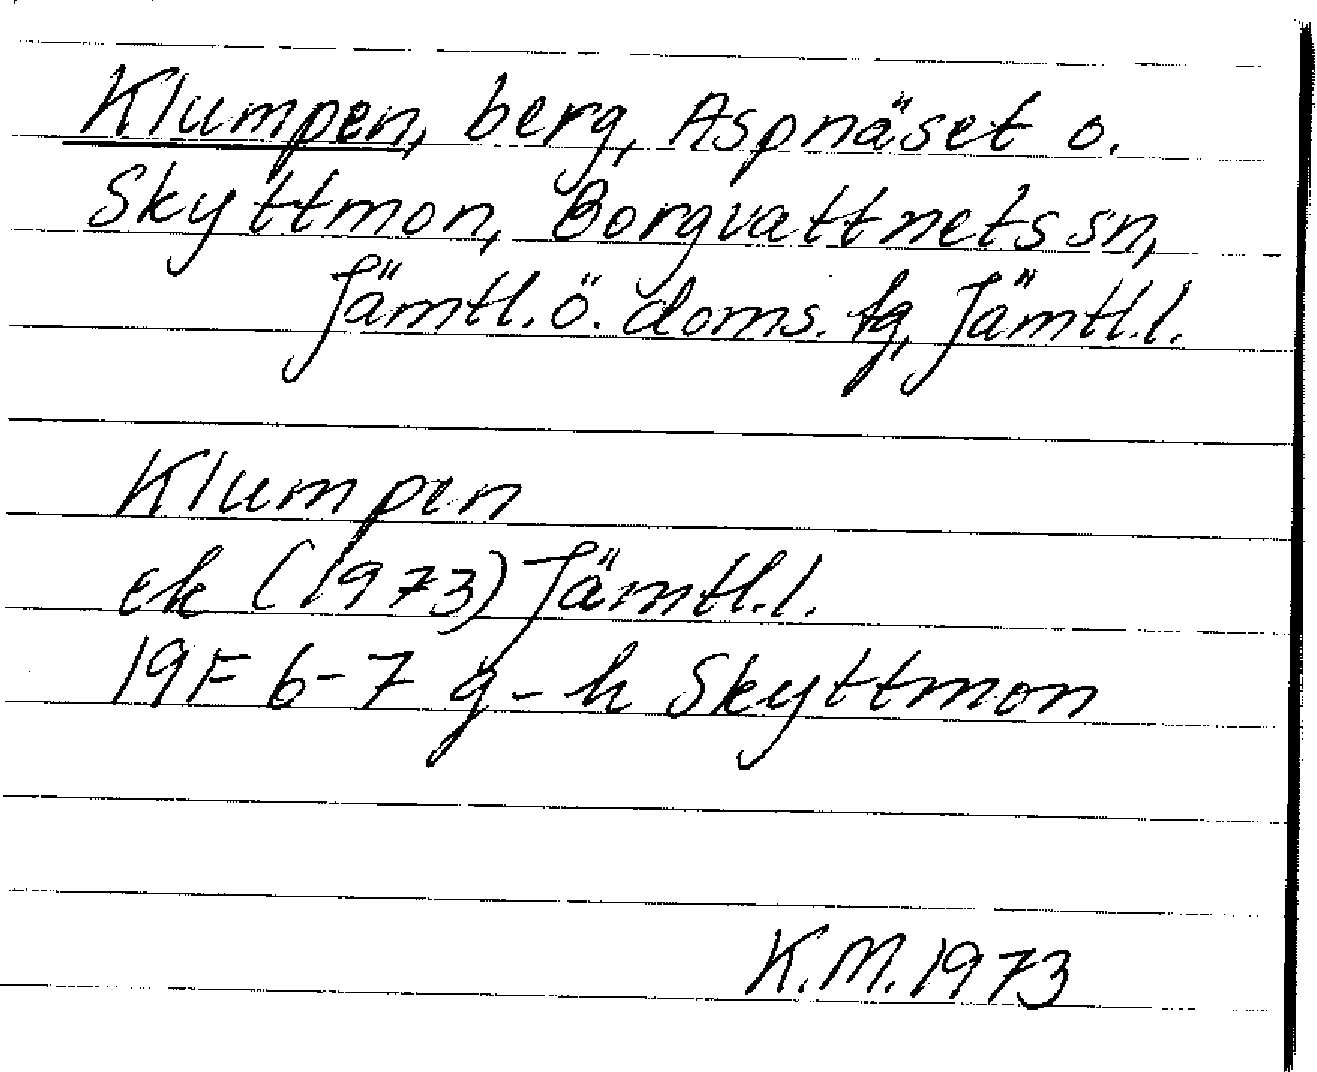 Klumpen, berg, Aspnäset o.
Skyttmon, Borgvattnets sn,
Jämtl. ö. doms. tg, Jämtl. l.
Klumpen
ek (1973) Jämtl. l.
19F 6-7 g-h Skyttmon
K.M. 1973